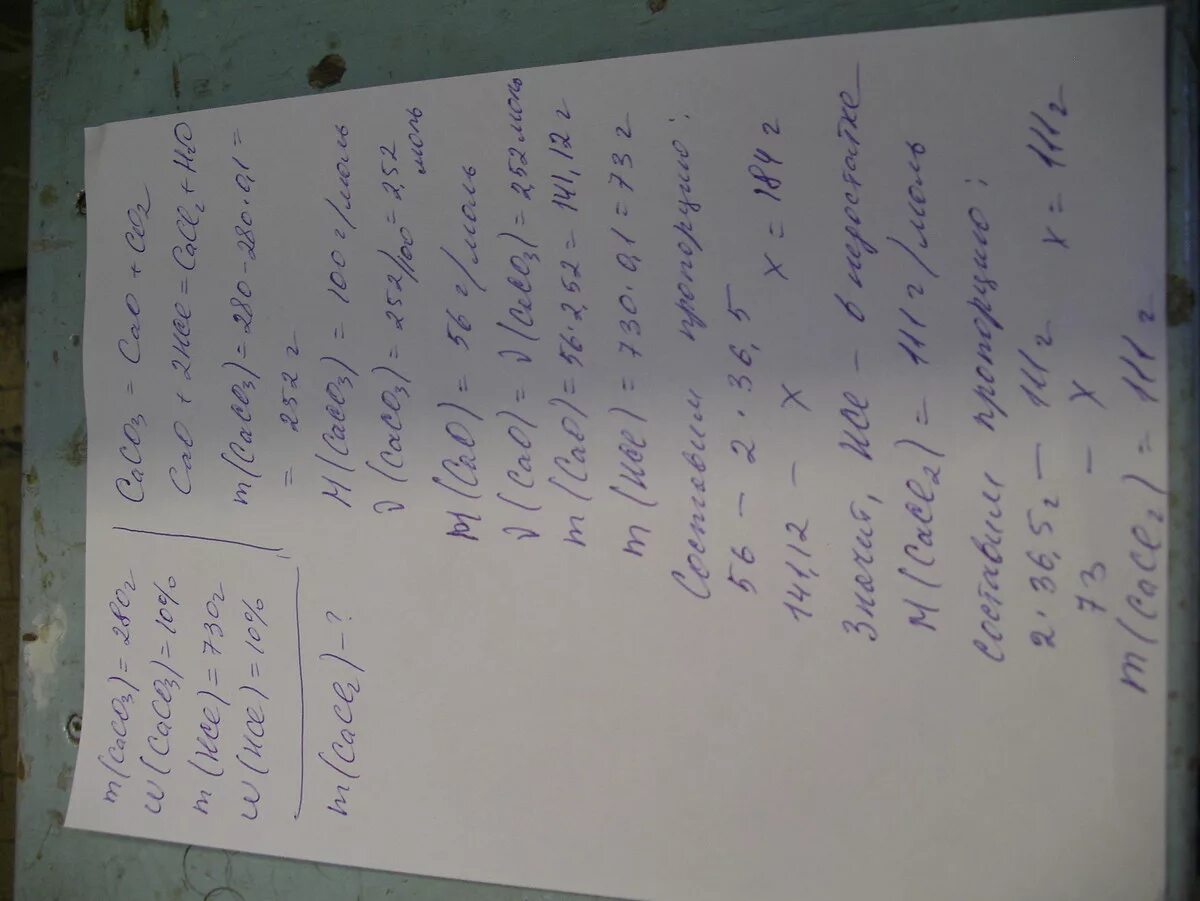 m(CaCO₃) = 280г
W(CaCO₃) = 10%
m(HCl) = 730г
W(HCl) = 10%
m(CaCl₂) – ?
CaCO₃ = CaO + CO₂
CaO + 2HCl = CaCl₂ + H₂O
m(CaCO₃) = 280 - 280·0,1 =
= 252 г
M(CaCO₃) = 100 г/моль
ν(CaCO₃) = 252/100 = 2,52
моль
M(CaO) = 56 г/моль
ν(CaO) = ν(CaCO₃) = 2,52 моль
m(CaO) = 56·2,52 = 141,12 г
m(HCl) = 730·0,1 = 73 г
Составим пропорцию:
56 – 2·36,5
141,12 – x x = 184 г
Значит, HCl – в недостатке
M(CaCl₂) = 111 г/моль
Составим пропорцию:
2·36,5г – 111г
73 – x x = 111г
m(CaCl₂) = 111 г